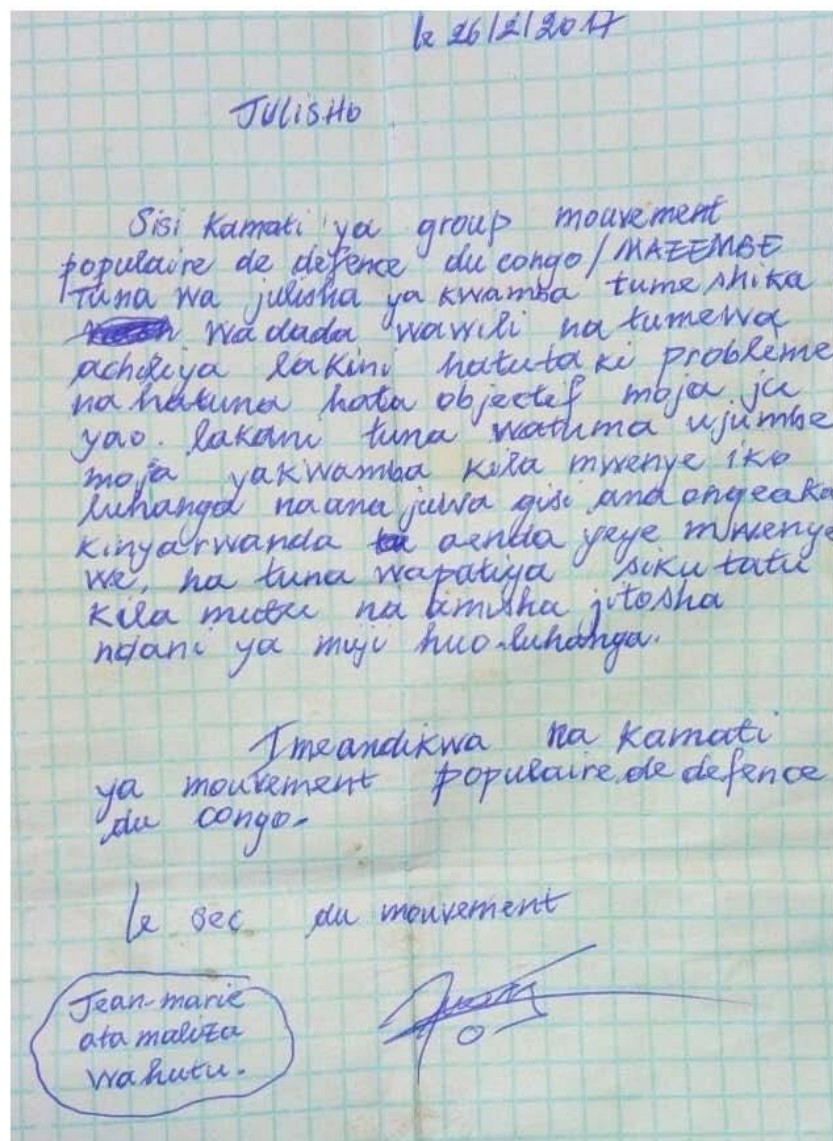 le 26/2/2017
JULISHO
Sisi Kamati ya group mouvement
populaire de defence du congo/MAZEMBE
Tuna wa julisha ya kwamba tumeshika
wadada wawili na tumewa
achiliya lakini hatutaki probleme
na hatuna hata objectif moja ju
yao. lakani tuna watuma ujumbe
moja yakwamba kila mwenye iko
luhanga na ana juwa gisi ana ongeaka
kinyarwanda aenda yeye mwenye
we, na tuna wapatiya siku tatu
kila mutu na amisha jitosha
ndani ya muji huo luhanga.
Imeandikwa na kamati
ya mouvement populaire de defence
du congo.
le sec du mouvement
Jean-marie
ata maliza
wahutu.